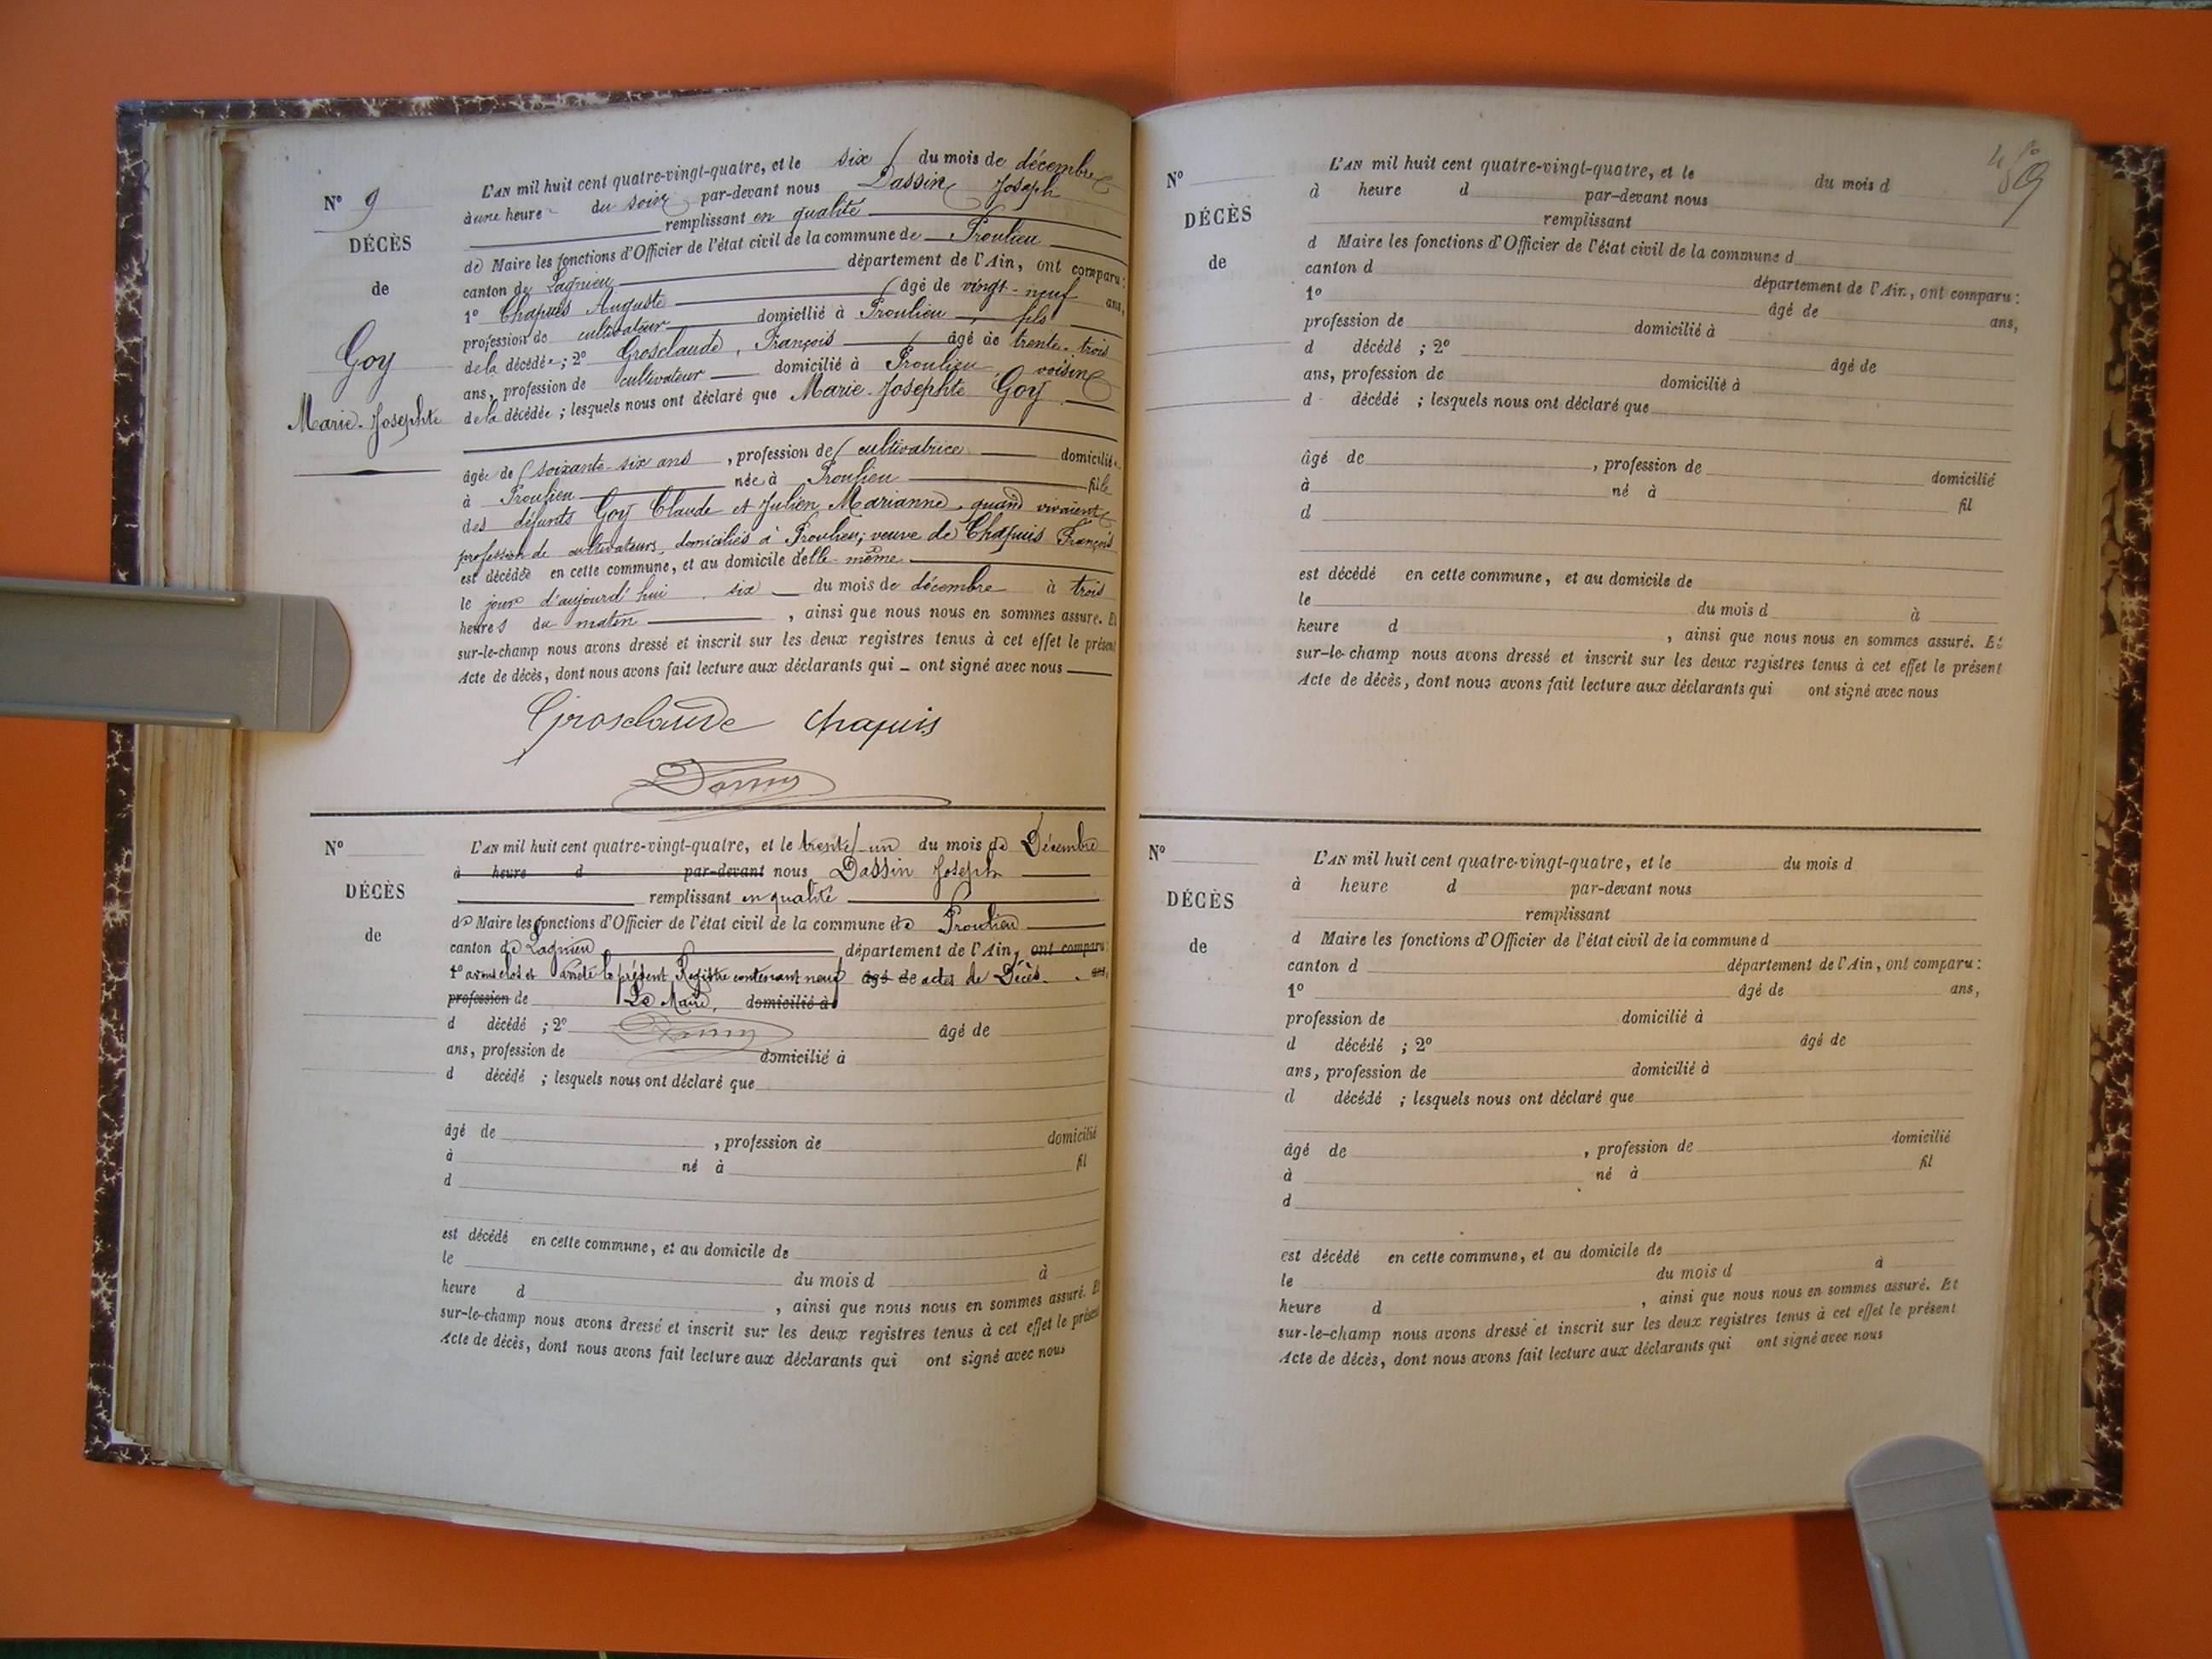 N° 9
DÉCÈS
de
Goy
Marie-Josephte
L'AN mil huit cent quatre-vingt-quatre, et le six du mois de décembre
à une heure du soir par-devant nous Dassin Joseph
remplissant en qualité
de Maire les fonctions d'Officier de l'état civil de la commune de Proulieu
canton de Lagnieu département de l'Ain, ont comparu :
1° Chapuis Auguste âgé de vingt-neuf ans,
profession de cultivateur domicilié à Proulieu, fils
de la décédée ; 2° Grosclaude, François âgé de trente-trois
ans, profession de cultivateur domicilié à Proulieu, voisin
de la décédée ; lesquels nous ont déclaré que Marie-Josephte Goy
âgée de soixante-six ans, profession de cultivatrice domiciliée
à Proulieu née à Proulieu fille
des défunts Goy Claude et Julien Marianne, quand vivaient
profession de cultivateurs, domiciliés à Proulieu; veuve de Chapuis François
est décédée en cette commune, et au domicile d'elle-même
le jour d'aujourd'hui, six du mois de décembre à trois
heures du matin, ainsi que nous nous en sommes assuré. Et
sur-le-champ nous avons dressé et inscrit sur les deux registres tenus à cet effet le présent
Acte de décès, dont nous avons fait lecture aux déclarants qui ont signé avec nous
Grosclaude Chapuis
N°
DÉCÈS
de
L'AN mil huit cent quatre-vingt-quatre, et le trente-un du mois de Décembre
à heure d par-devant nous Dassin Joseph
remplissant en qualité
de Maire les fonctions d'Officier de l'état civil de la commune de Proulieu
canton de Lagnieu département de l'Ain, ont comparu :
1° avons clos et arrêté le présent Registre contenant neuf âgé de actes de Décès. ans,
profession de Le Maire, domicilié à
d décédé ; 2° âgé de
ans, profession de domicilié à
d décédé ; lesquels nous ont déclaré que
âgé de , profession de domicilié
à né à fil
d
est décédé en cette commune, et au domicile de
le du mois d à
heure d , ainsi que nous nous en sommes assuré. Et
sur-le-champ nous avons dressé et inscrit sur les deux registres tenus à cet effet le présent
Acte de décès, dont nous avons fait lecture aux déclarants qui ont signé avec nous
N°
DÉCÈS
de
L'AN mil huit cent quatre-vingt-quatre, et le du mois d
à heure d par-devant nous
remplissant
d Maire les fonctions d'Officier de l'état civil de la commune d
canton d département de l'Ain, ont comparu :
1° âgé de ans,
profession de domicilié à
d décédé ; 2° âgé de
ans, profession de domicilié à
d décédé ; lesquels nous ont déclaré que
âgé de , profession de domicilié
à né à fil
d
est décédé en cette commune, et au domicile de
le du mois d à
heure d , ainsi que nous nous en sommes assuré. Et
sur-le-champ nous avons dressé et inscrit sur les deux registres tenus à cet effet le présent
Acte de décès, dont nous avons fait lecture aux déclarants qui ont signé avec nous
N°
DÉCÈS
de
L'AN mil huit cent quatre-vingt-quatre, et le du mois d
à heure d par-devant nous
remplissant
d Maire les fonctions d'Officier de l'état civil de la commune d
canton d département de l'Ain, ont comparu :
1° âgé de ans,
profession de domicilié à
d décédé ; 2° âgé de
ans, profession de domicilié à
d décédé ; lesquels nous ont déclaré que
âgé de , profession de domicilié
à né à fil
d
est décédé en cette commune, et au domicile de
le du mois d à
heure d , ainsi que nous nous en sommes assuré. Et
sur-le-champ nous avons dressé et inscrit sur les deux registres tenus à cet effet le présent
Acte de décès, dont nous avons fait lecture aux déclarants qui ont signé avec nous